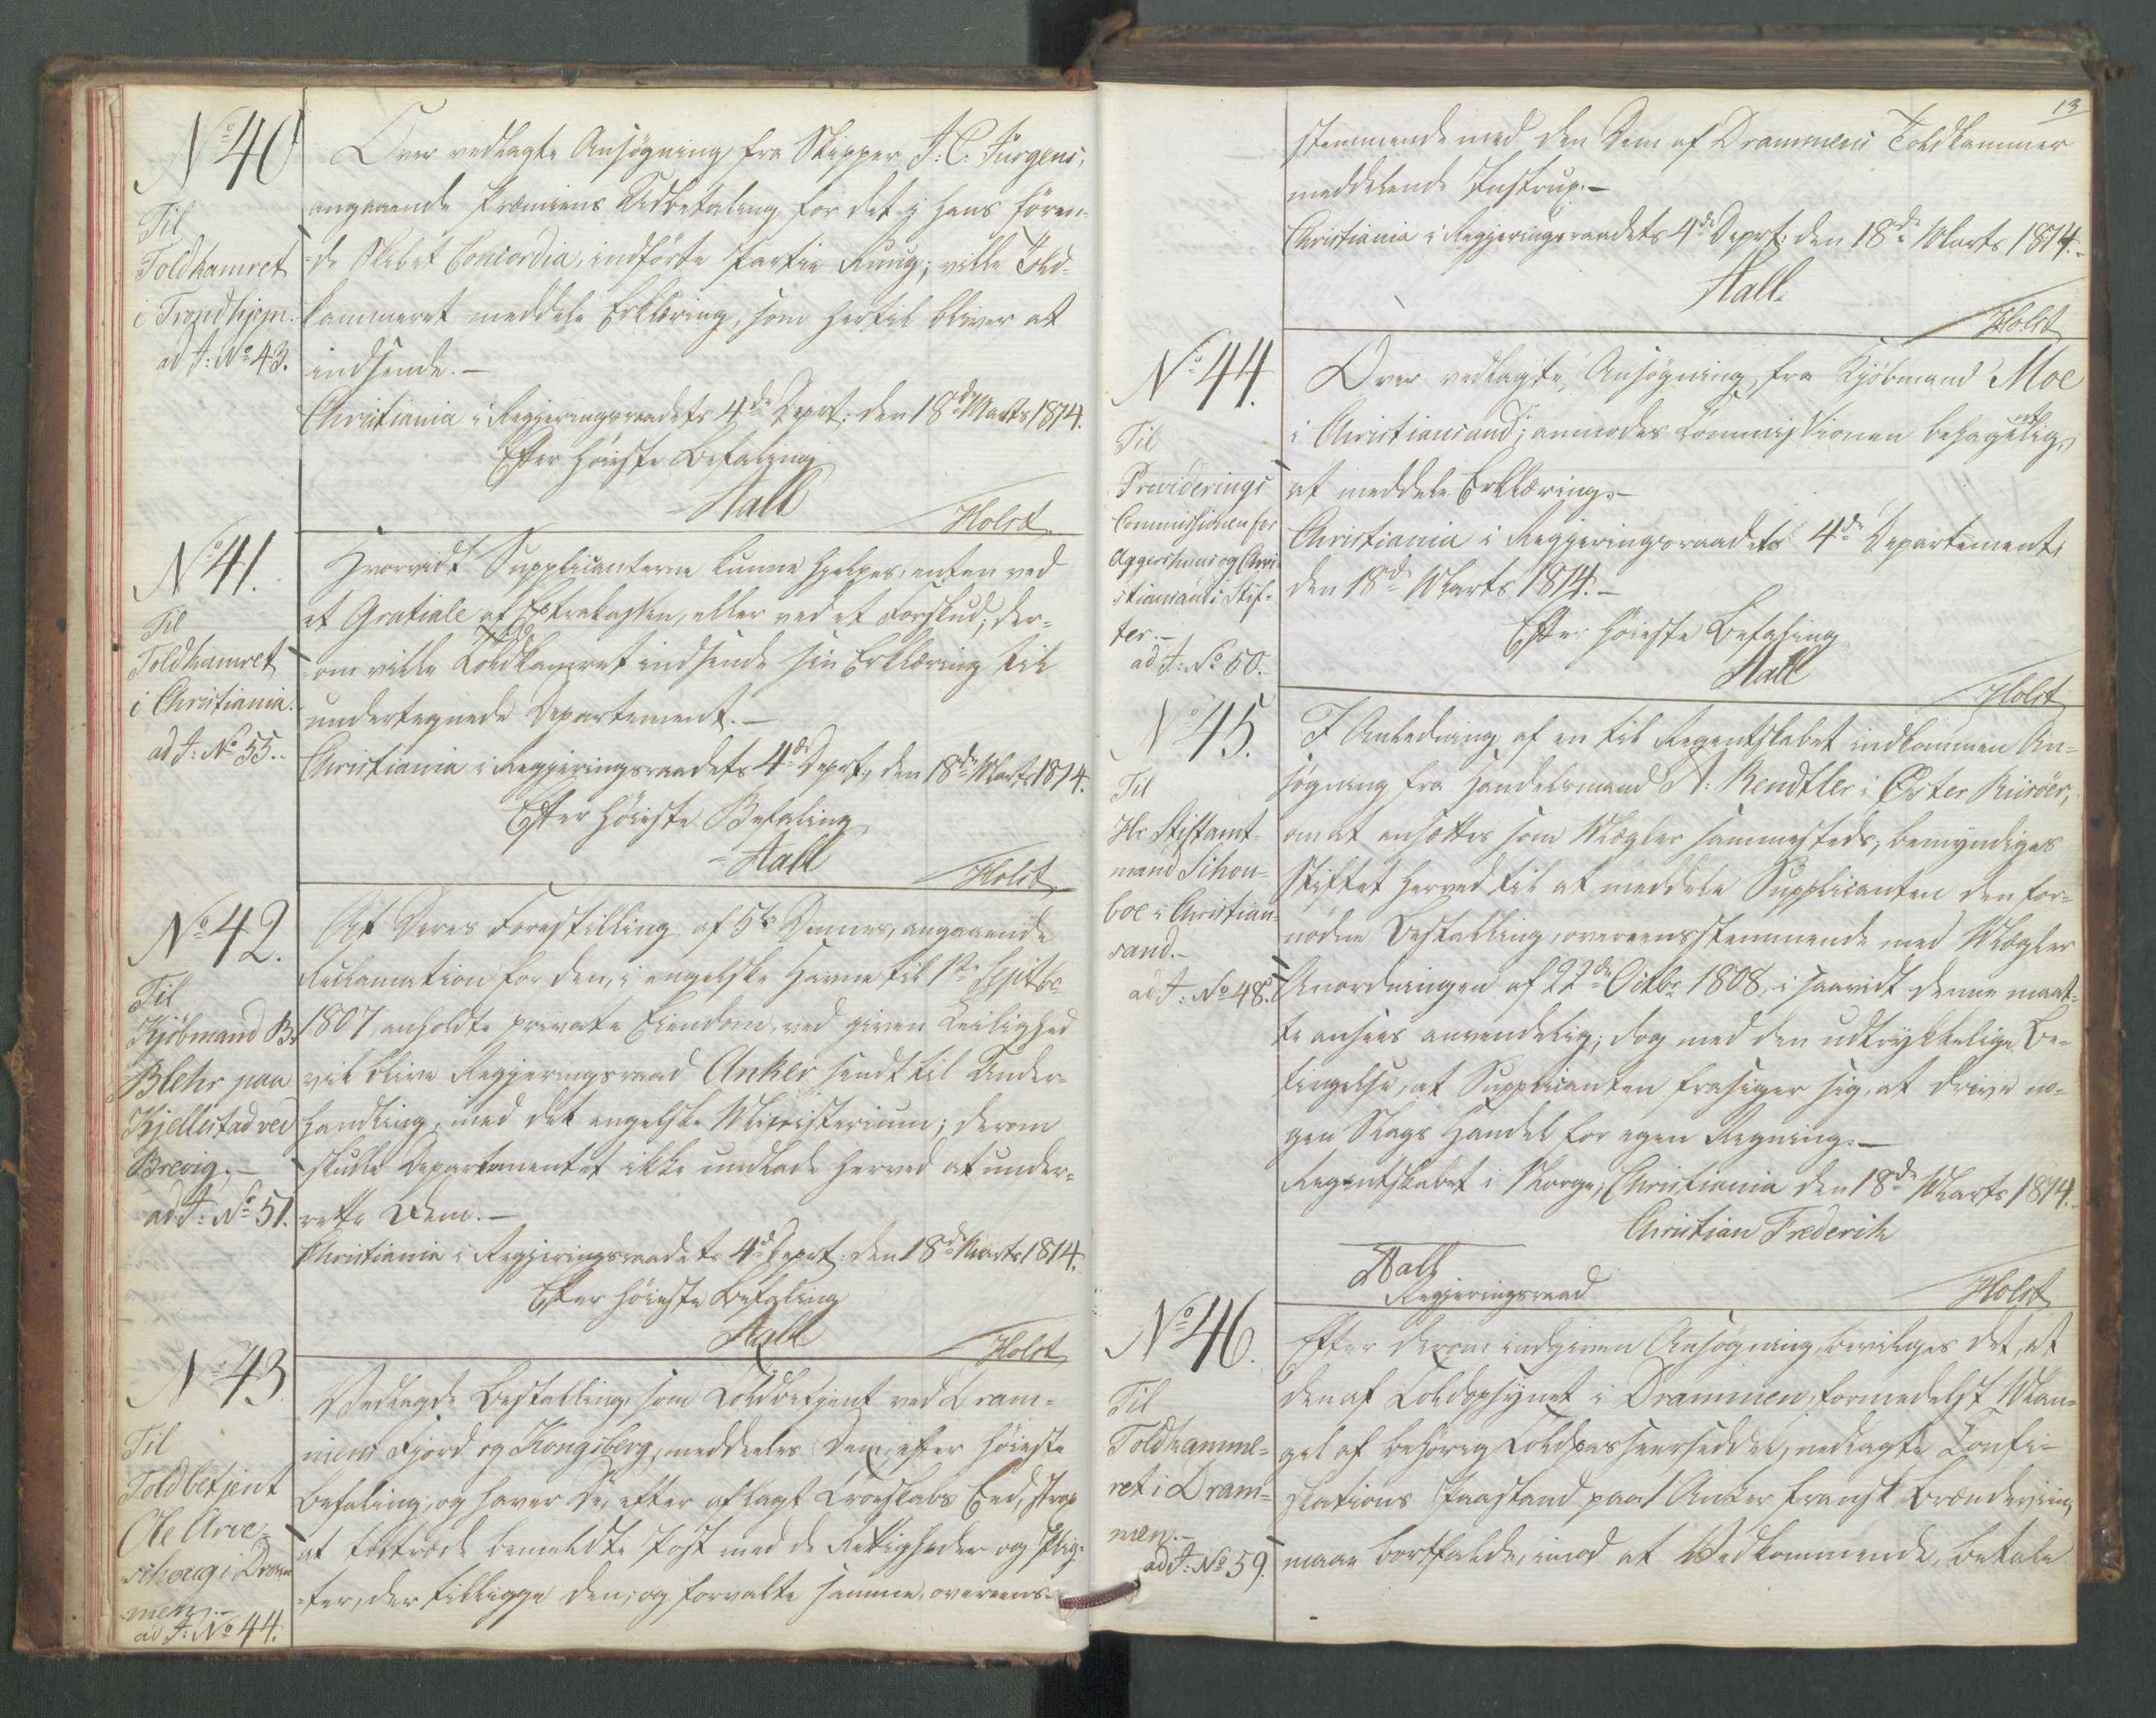 No 40
Til
Toldkamret
i Trondhjem.
ad J: No 43.
Over vedlagte Ansøgning fra Skipper J: C: Jürgens,
angaaende Præmiens Udbetaling for det i hans føren-
de Skibet Concordia, indførte Partie Ruug; ville Told-
kammeret meddele Erklæring, som hertil bliver at
indsende.-
Christiania i Regjeringsraadets 4de Deprt: den 18de Marts 1814.
Efter høieste Befaling
Hall
Holst
No 41.
Til
Toldkamret
i Christiania.
ad J: No 55.
Hvorvidt Supplicanterne kunne hjelpes, enten ved
et Gratiale af Extrakassen, eller ved et Forskud; der-
om ville Toldkamret indsende sin Erklæring til
undertegnede Departement.-
Christiania i Regjeringsraadets 4de Deprt: den 18de Marts 1814.
Efter høieste Befaling
Hall
Holst
No 42.
Til
Kjøbmand B.
Blehr paa
Kjellestad ved
Brevig.-
ad J: No 51.
At Deres Forestilling af 5te Dennes, angaaende
Reclamation for den, i engelske Havne til 1ste Septbr
1807 anholdte private Eiendom, ved given Leilighed
vil blive Regjeringsraad Anker sendt til Under-
handling, med det engelske Ministerium; derom
skulle Departementet ikke undlade herved at under-
rette Dem.-
Christiania i Regjeringsraadets 4de Deprt: den 18de Marts 1814.
Efter høieste Befaling
Hall
Holst
No 43
Til
Toldbetjent
Ole Arve-
schoug i Dram
men.-
ad J: No 44.
Vedlagde Bestalling, som Toldbetjent ved Dram-
mens Fjord og Kongsberg, meddeeles Dem, efter høieste
Befaling; og haver De, efter aflagt Troeskabs Eed, strax
at tiltræde bemeldte Post med de Rettigheder og Plig-
ter, der tillægge den; og forvalte samme, overeens-
13
stemmende med den Dem af Drammens Toldkammer
meddelende Instrux.-
Christiania i Regjeringsraadets 4de Deprt: den 18de Marts 1814.-
Hall.
Holst
No 44.
Til
Providerings
Commissionen for
Aggershuus og Chri-
stiansands Stif-
ter.-
ad J: No 50.
Over vedlagte Ansøgning fra Kjøbmand Moe
i Christiansand; anmodes Commissionen behageligst
at meddele Erklæring.-
Christiania i Regjeringsraadets 4de Departement,
den 18de Marts 1814.-
Efter høieste Befaling
Hall
Holst
No 45.
Til
Hr Stiftamt-
mand Schou-
boe i Christian-
sand.-
ad J: No 48.
I Anledning af en til Regentskabet indkommen An-
søgning fra Handelsmand A: Rendtler i Øster Riisöer,
om at ansættes som Mægler sammesteds, bemyndiges
Stiftet herved til at meddele Supplicanten den for-
nødne Bestalling, overeensstemmende med Mægler
Anordningen af 22de Octbr 1808, i saavidt denne maat-
te ansees anvendelig; dog med den udtrykkelige Be-
tingelse, at Supplicanten frasiger sig, at drive no-
gen Slags Handel for egen Regning.-
Regentskabet i Norge, Christiania den 18de Marts 1814.-
Christian Frederik
Hall
Regjeringsraad
Holst
No 46.
Til
Toldkamme-
ret i Dram-
men.-
ad J: No 59.
Efter derom indgiven Ansøgning, bevilges det, at
den af Toldopsynet i Drammen, formedelst Man-
gel af behørig Toldpasseerseddel, nedlagte Confi-
skations Paastand paa 1 Anker fransk Brændeviin,
maae bortfalde, imod at Vedkommende, betale